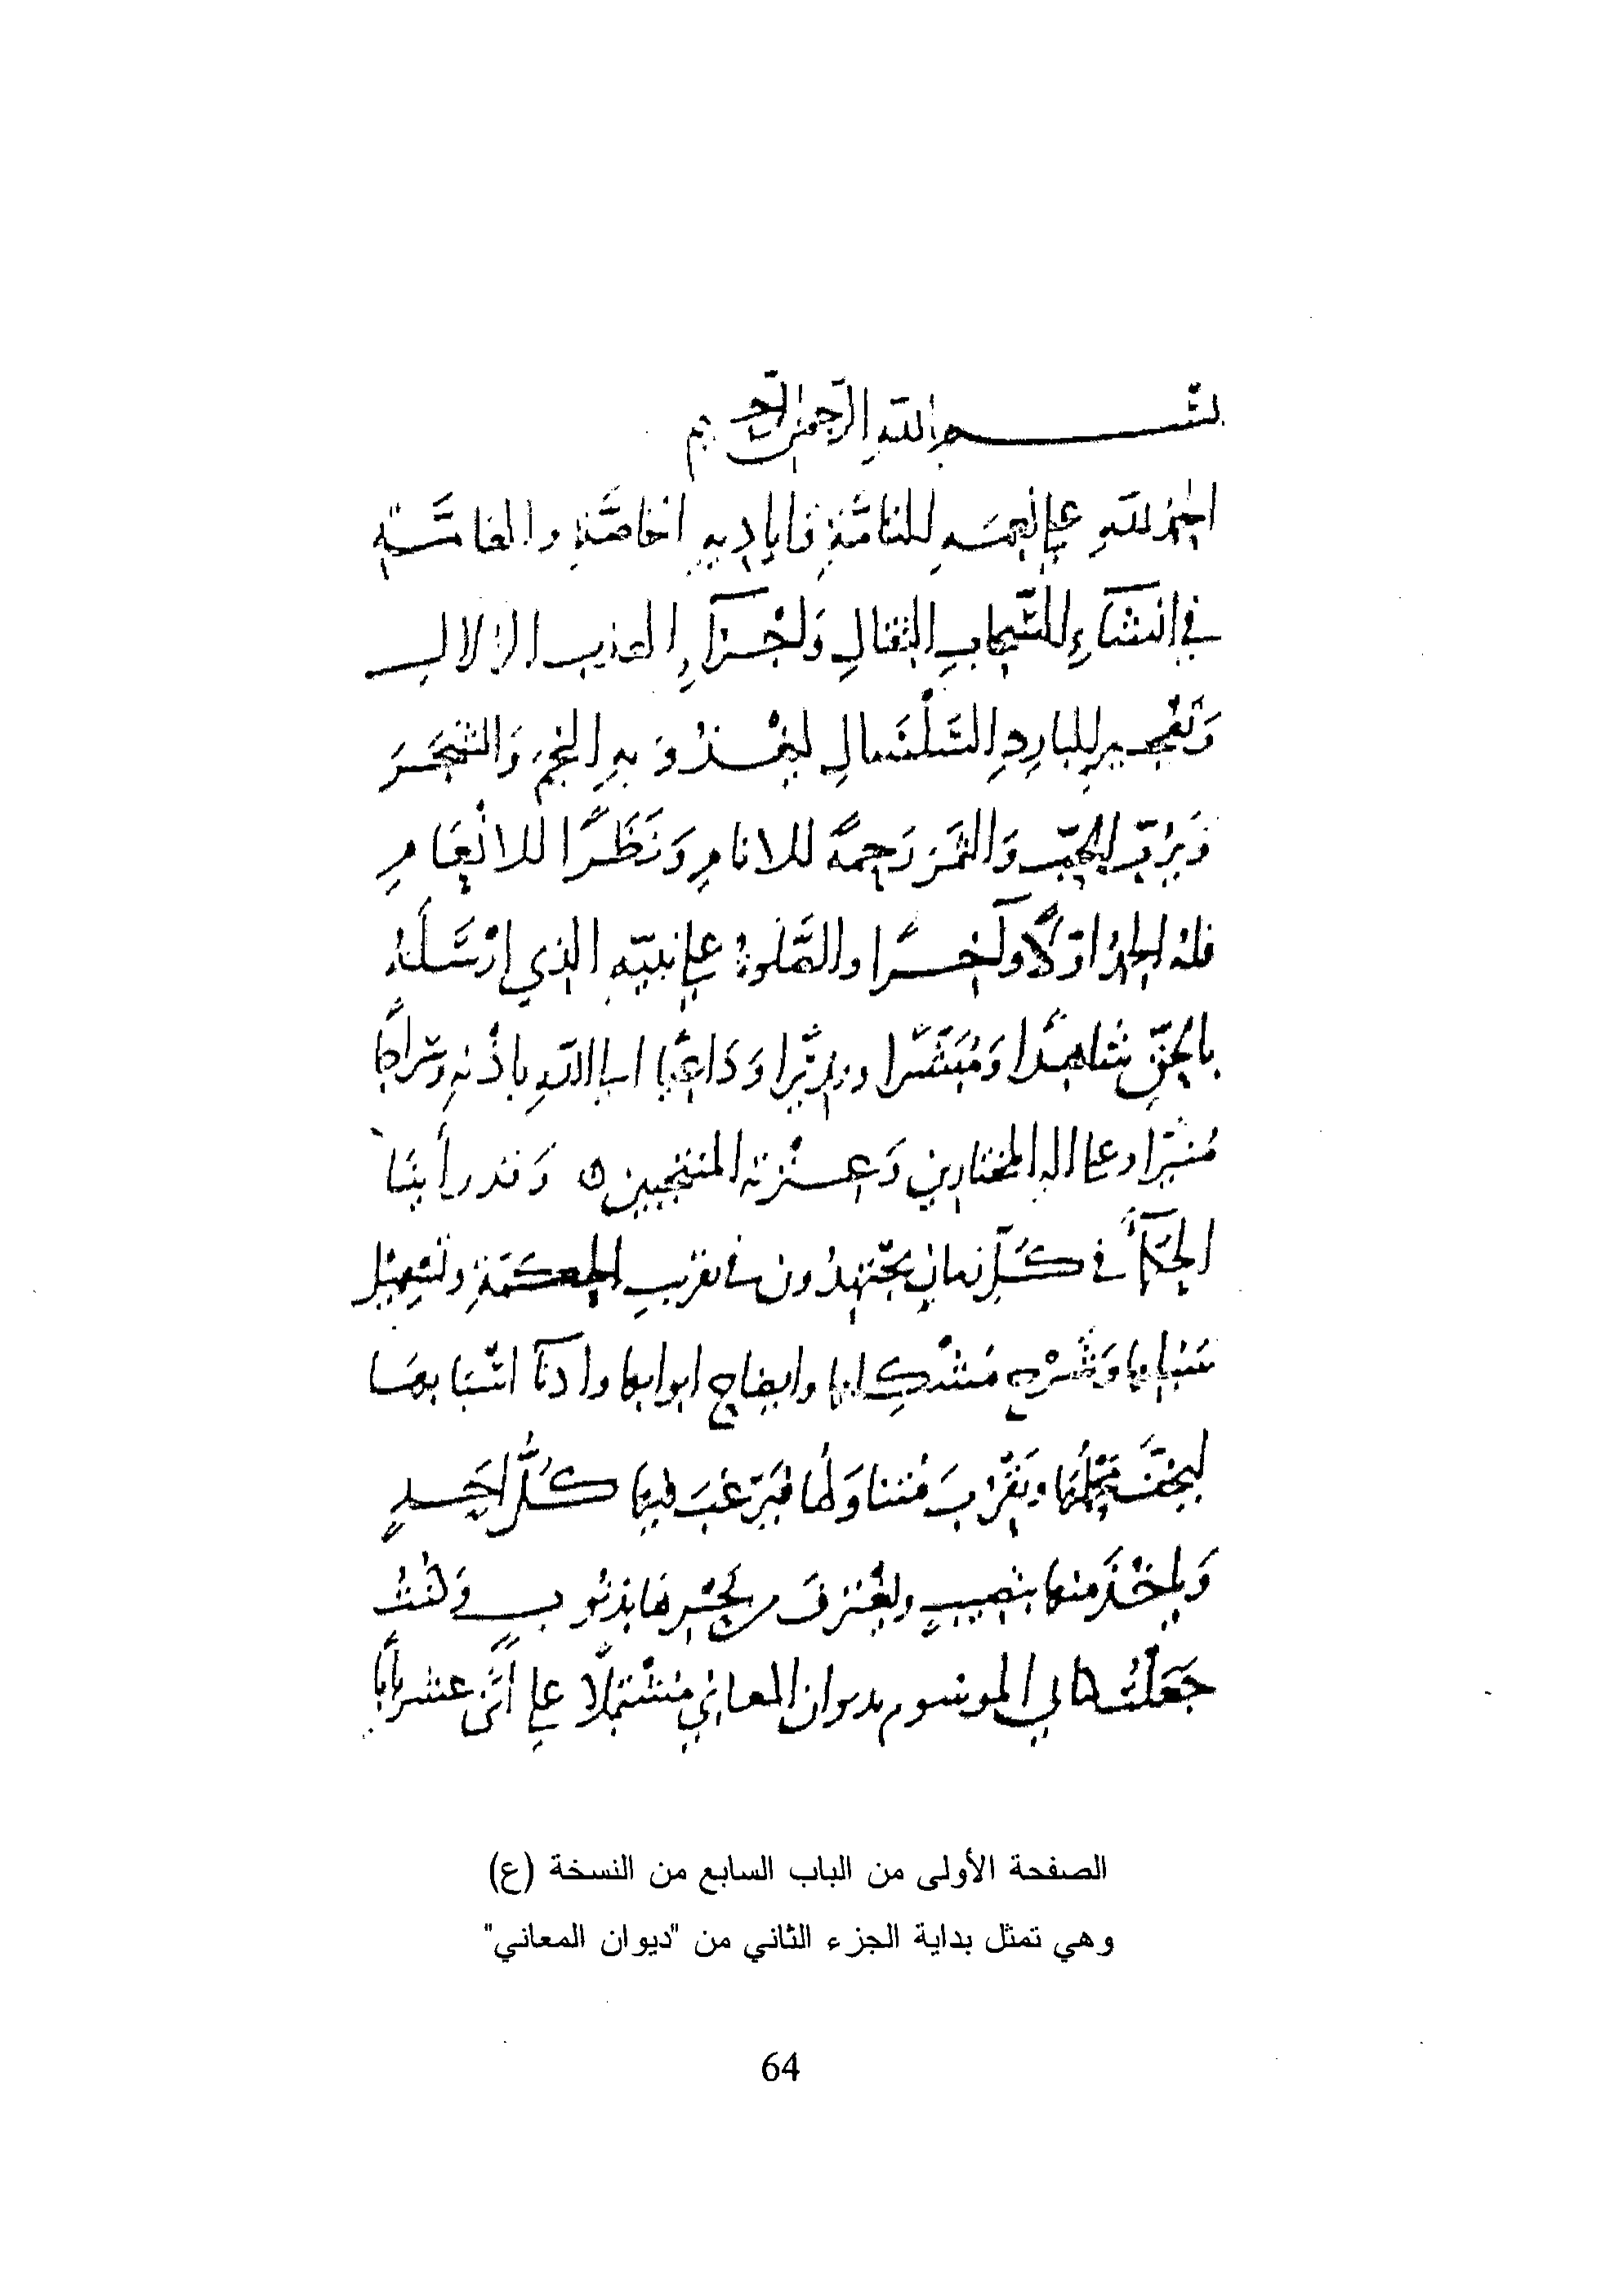 بسم الله الرحمن الرحيم
الحمد لله على نعمه التامة واياديه الخاصة والعامة
في انشاء السحاب الثقال واجراء العذب الزلال
وتفجير البارد السلسال ليغذو به النجم والشجر
ويرب الحب والثمر رحمة للانام ونظرا للانعام
فله الحمد اولا وآخرا والصلوة على نبيه الذي ارسله
بالحق شاهدا ومبشرا ونذيرا وداعيا الى الله باذنه وسراجا
منيرا وعلى اله المختارين وعترته المنتجبين ٥ وقد رأينا
الحكماء في كل زمان يجتهدون في تقريب الحكمة وتسهيل
وشرح مشكلها وايضاح ابوابها وادناء اشباهها
ليخف محملها ويقرب متناولها فيرغب فيها كل احد
وياخذ منها بنصيب ويغترف من بحرها بذنوب وكنت
جعلت كتابي الموسوم بديوان المعاني مشتملا على اثنى عشر بابا
الصفحة الأولى من الباب السابع من النسخة (ع)
وهي تمثل بداية الجزء الثاني من "ديوان المعاني"
64